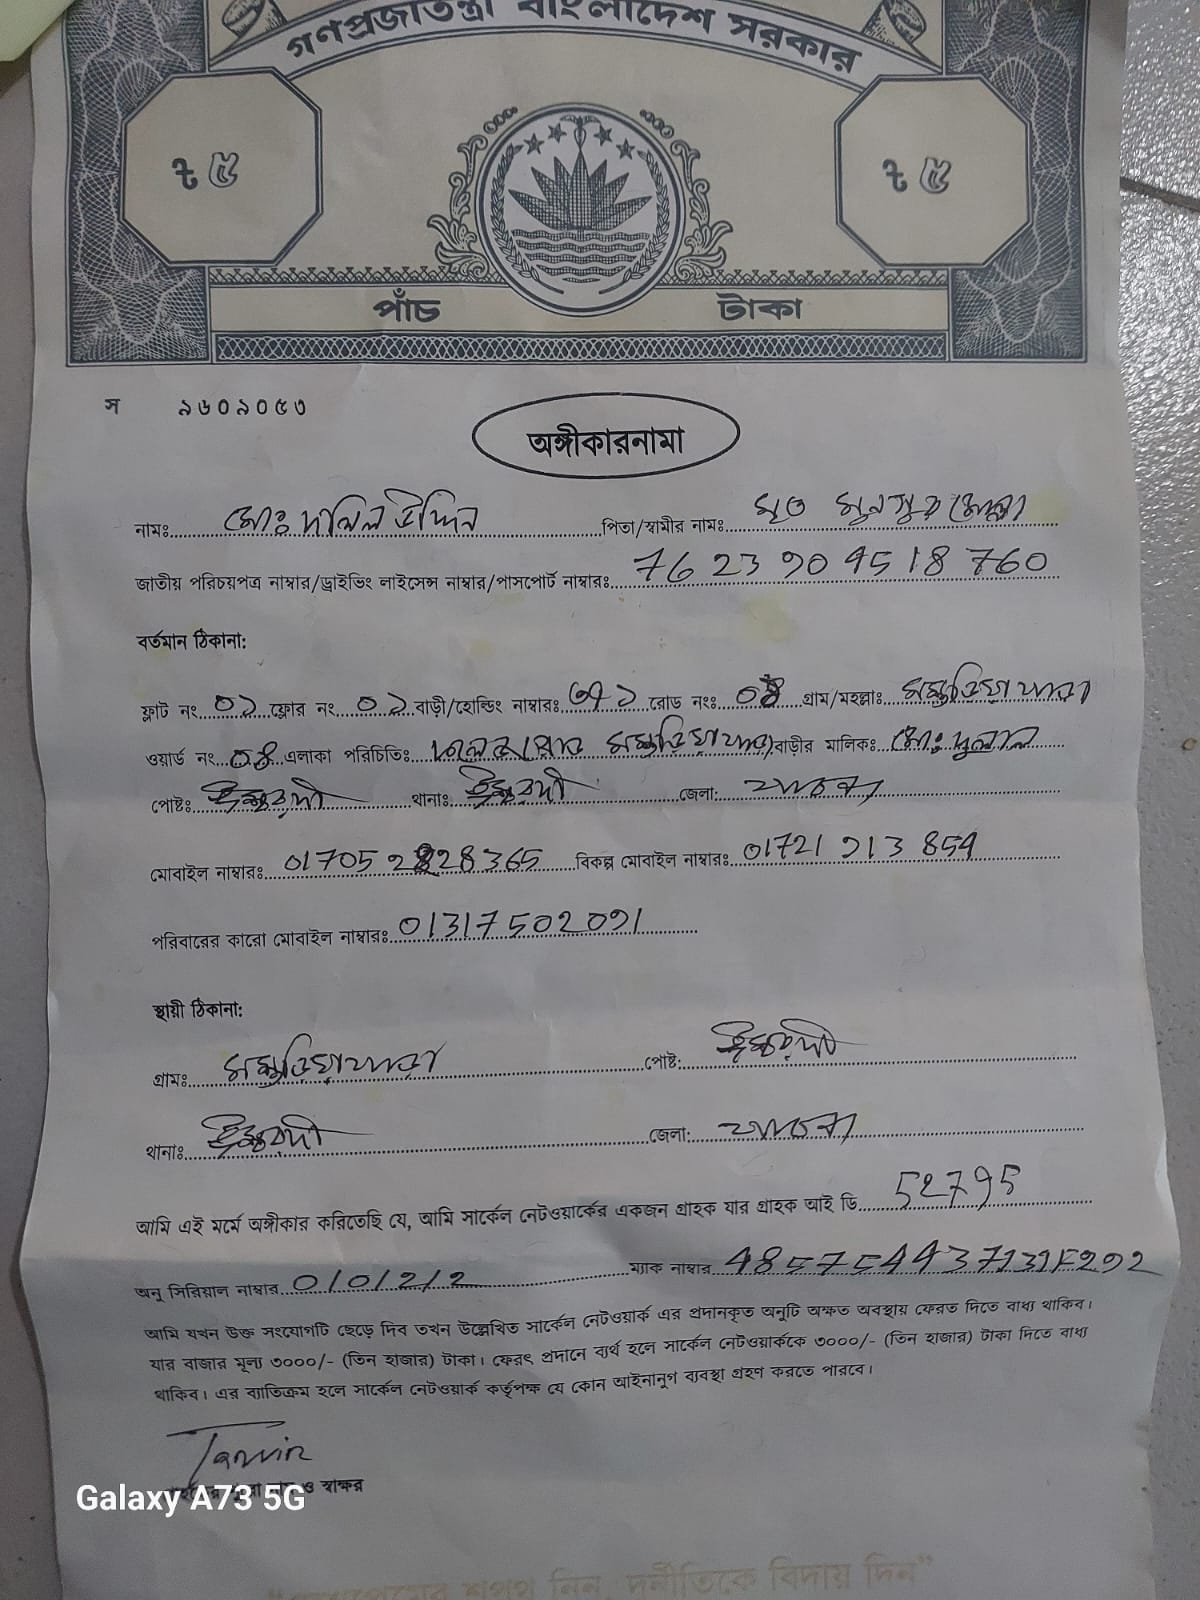 গণপ্রজাতন্ত্রী বাংলাদেশ সরকার
৳ ৫ ৳ ৫
পাঁচ টাকা
স ৯৬০৯০৫৩
অঙ্গীকারনামা
নামঃ মোঃ দলিল উদ্দিন পিতা/স্বামীর নামঃ মৃত মুনসুর মোল্লা
জাতীয় পরিচয়পত্র নাম্বার/ড্রাইভিং লাইসেন্স নাম্বার/পাসপোর্ট নাম্বারঃ 76 23 90 45 18 760
বর্তমান ঠিকানা:
ফ্লাট নং ০১ ফ্লোর নং ০১ বাড়ী/হোল্ডিং নাম্বারঃ রোড নংঃ ০৪ গ্রাম/মহল্লাঃ
ওয়ার্ড নং ০৪ এলাকা পরিচিতিঃ বাড়ীর মালিকঃ মোঃ দুলাল
পোষ্টঃ ঈশ্বরদী থানাঃ ঈশ্বরদী জেলা: পাবনা
মোবাইল নাম্বারঃ বিকল্প মোবাইল নাম্বারঃ 01721 913 854
পরিবারের কারো মোবাইল নাম্বারঃ 01317502091
স্থায়ী ঠিকানা:
গ্রামঃ পোষ্ট: ঈশ্বরদী
থানাঃ ঈশ্বরদী জেলা: পাবনা
আমি এই মর্মে অঙ্গীকার করিতেছি যে, আমি সার্কেল নেটওয়ার্কের একজন গ্রাহক যার গ্রাহক আই ডি 52795
অনু সিরিয়াল নাম্বার 0/0/2/2 ম্যাক নাম্বার
আমি যখন উক্ত সংযোগটি ছেড়ে দিব তখন উল্লেখিত সার্কেল নেটওয়ার্ক এর প্রদানকৃত অনুটি অক্ষত অবস্থায় ফেরত দিতে বাধ্য থাকিব।
যার বাজার মূল্য ৩০০০/- (তিন হাজার) টাকা। ফেরৎ প্রদানে ব্যর্থ হলে সার্কেল নেটওয়ার্ককে ৩০০০/- (তিন হাজার) টাকা দিতে বাধ্য
থাকিব। এর ব্যাতিক্রম হলে সার্কেল নেটওয়ার্ক কর্তৃপক্ষ যে কোন আইনানুগ ব্যবস্থা গ্রহণ করতে পারবে।
Tanvir
ও স্বাক্ষর
Galaxy A73 5G
শপথ নিন, দুর্নীতিকে বিদায় দিন"